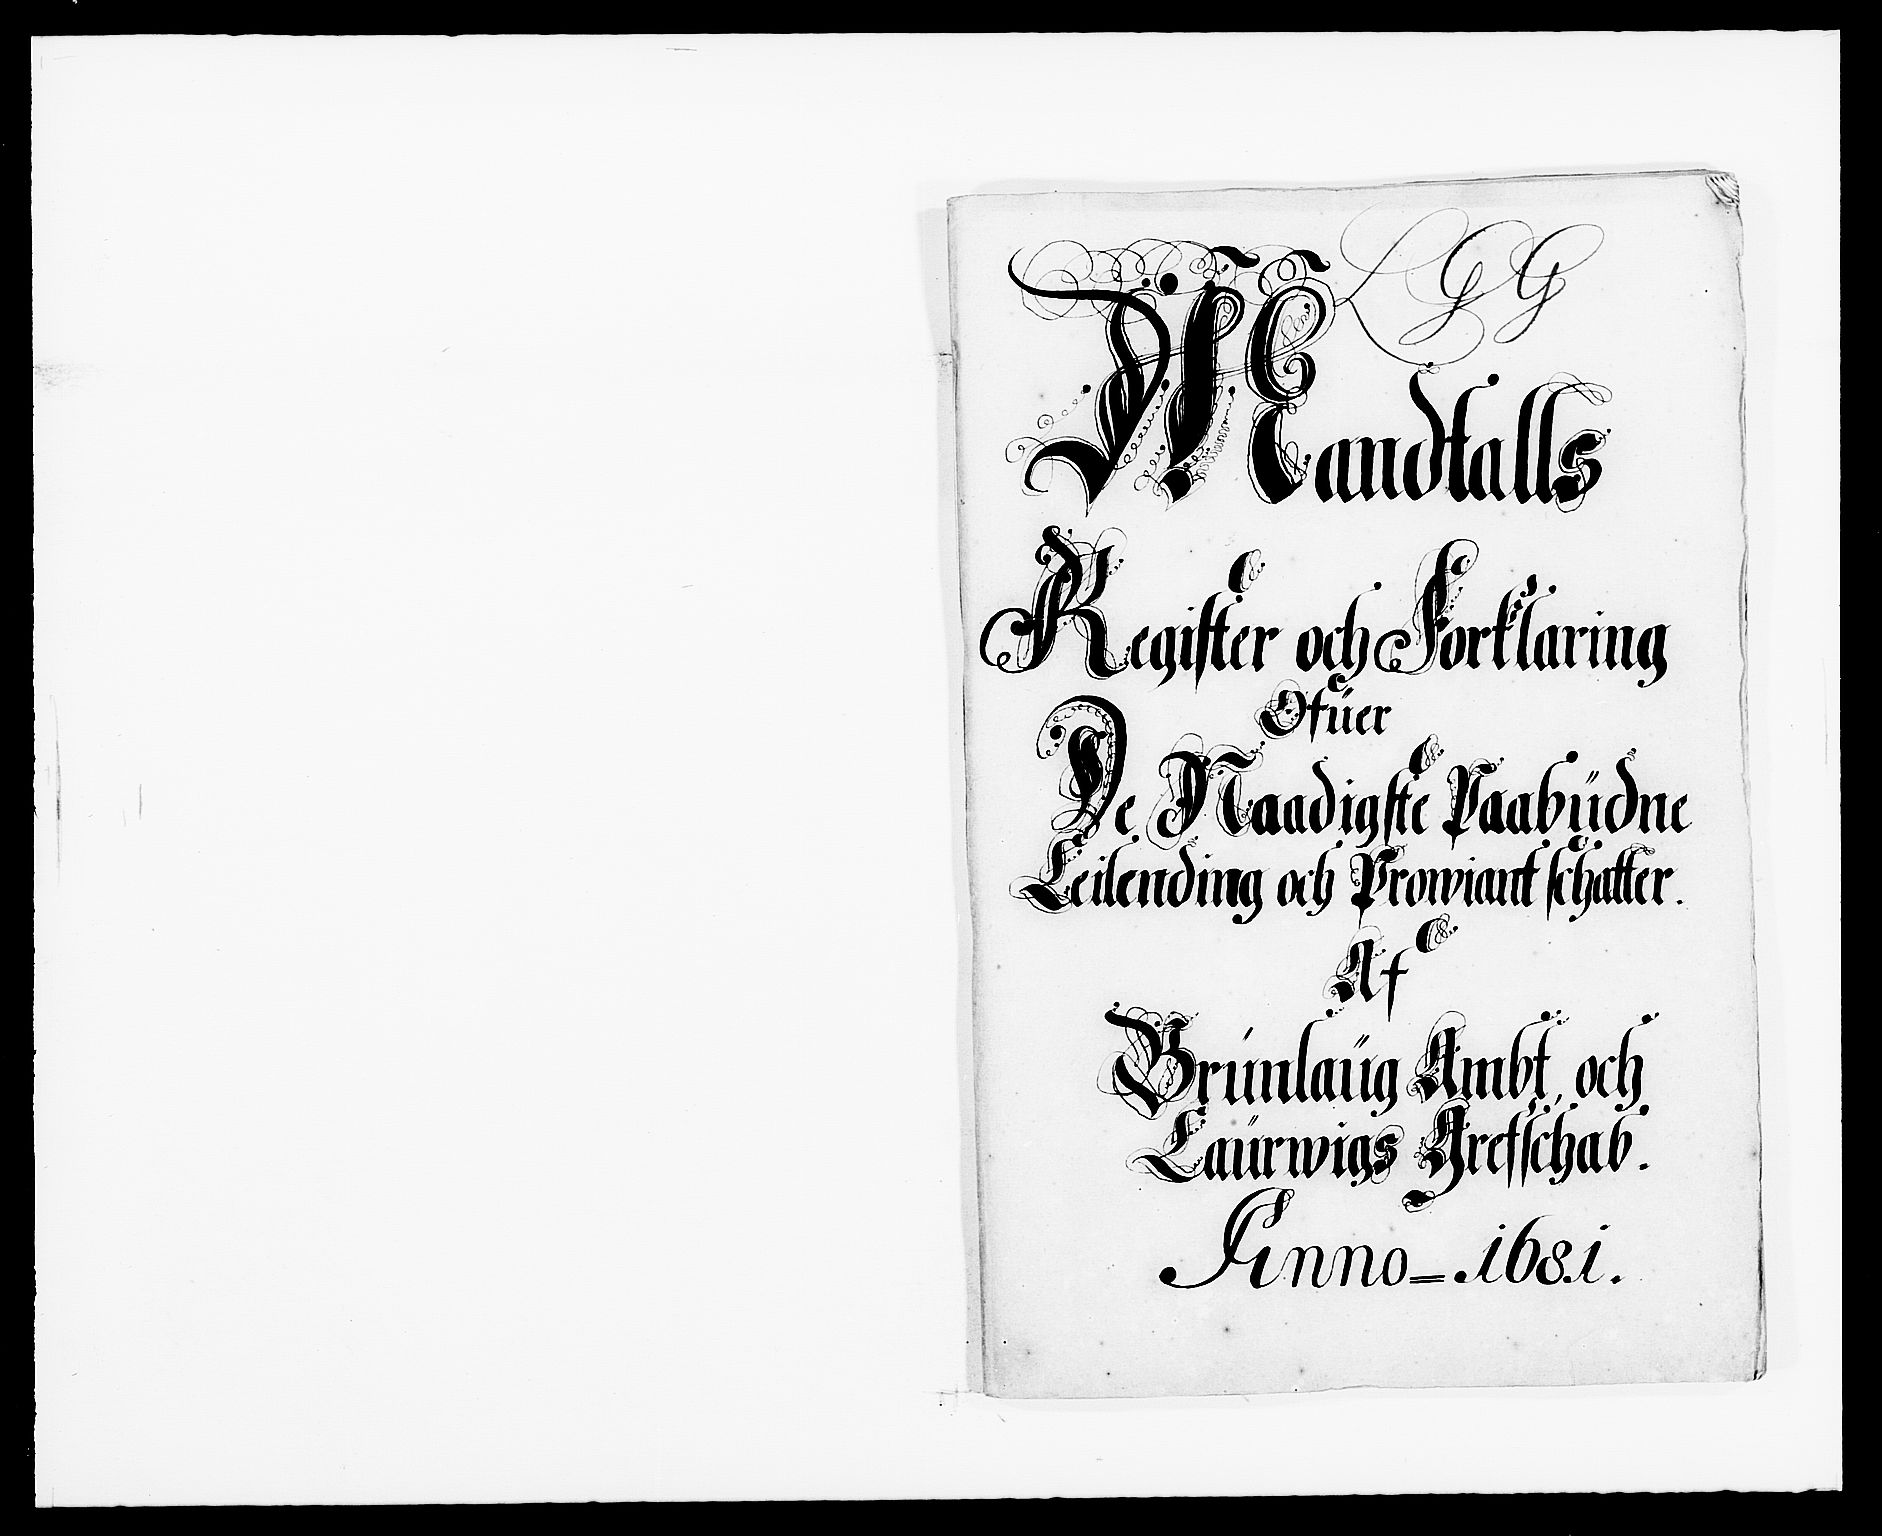 LGG
Mandtalls
Register och Forklaring
Ofüer
De Naadigste Paabüdne
Leilending och Prowiant schatter.
Af
Brúnlaüg Ambt, och
Laürwigs Grefschab.
Anno = 1681.